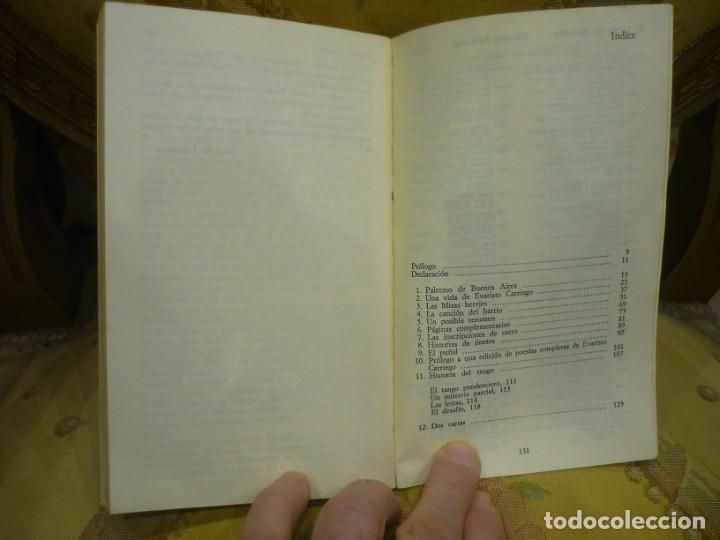 Indice
Prólogo 9
Declaración 11
1. Palermo de Buenos Aires 15
2. Una vida de Evaristo Carriego 23
3. Las Misas herejes 37
4. La canción del barrio 51
5. Un posible resumen 69
6. Páginas complementarias 73
7. Las inscripciones de carro 81
8. Historias de jinetes 89
9. El puñal 97
10. Prólogo a una edición de poesías completas de Evaristo
Carriego 101
11. Historia del tango 107
El tango pendenciero, 111
Un misterio parcial, 113
Las letras, 114
El desafío, 118
12. Dos cartas 123
131
todocoleccion.net